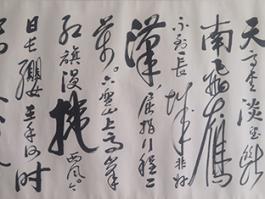 天高雲淡望断
南飞雁
不到長城非好
漢屈指行程二
萬六盘山上高峰
红旗漫捲西风今
日長纓在手何时